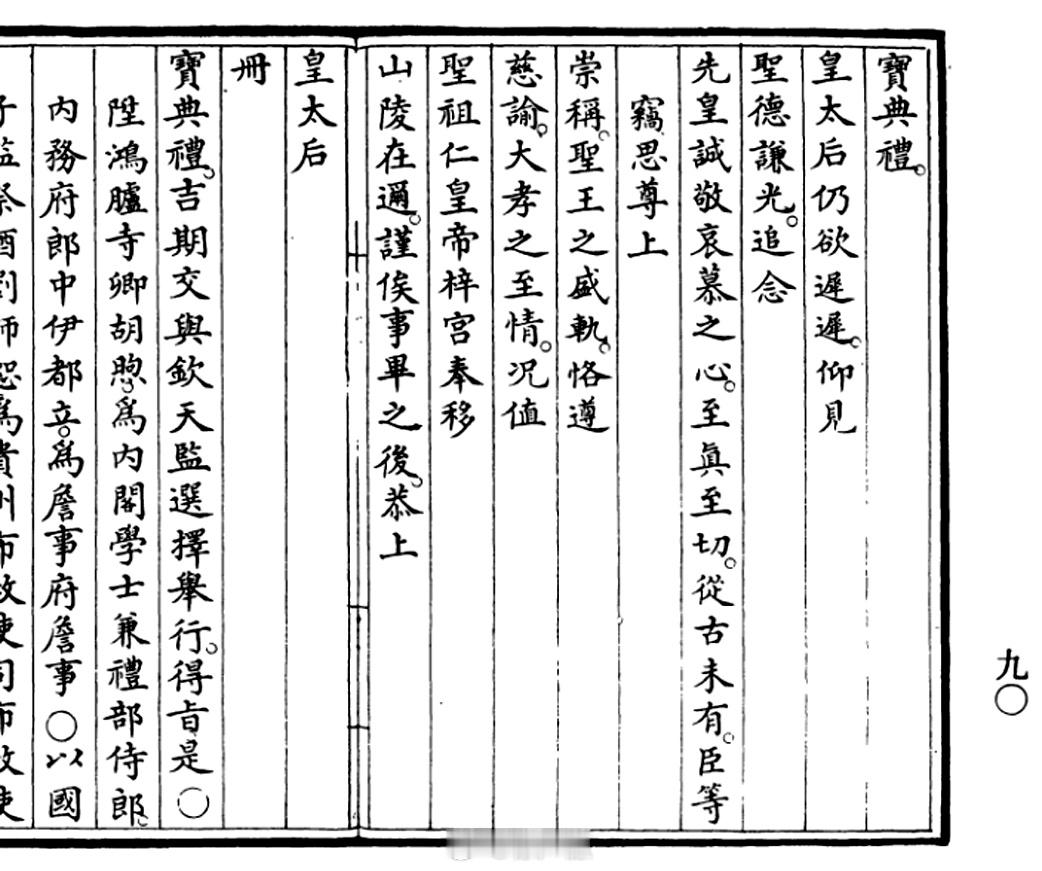 寶典禮。
皇太后仍欲遲遲。仰見
聖德謙光。追念
先皇誠敬哀慕之心。至眞至切。從古未有。臣等
竊思尊上
崇稱。聖王之盛軌。恪遵
慈諭。大孝之至情。况值
聖祖仁皇帝梓宮奉移
山陵在邇。謹俟事畢之後。恭上
皇太后
冊
寶典禮。吉期交與欽天監選擇舉行。得旨是○
陞鴻臚寺卿胡煦。爲內閣學士兼禮部侍郎。
內務府郎中伊都立。爲詹事府詹事○以國
子監祭酒劉師恕爲貴州布政使司布政使
九○